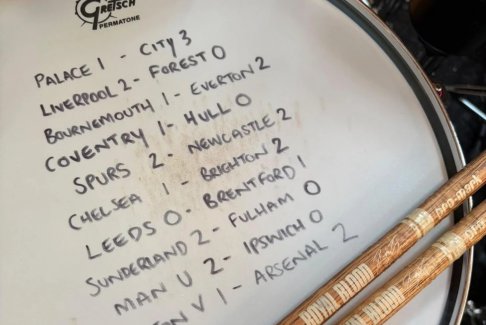 GRETSCH
PERMATONE
PALACE 1 - CITY 3
LIVERPOOL 2 - FOREST 0
BOURNEMOUTH 1 - EVERTON 2
COVENTRY 1 - HULL 0
SPURS 2 - NEWCASTLE 2
CHELSEA 1 - BRIGHTON 2
LEEDS 0 - BRENTFORD 1
SUNDERLAND 2 - FULHAM 0
MAN U 2 - IPSWICH 0
ON V 1 - ARSENAL 2